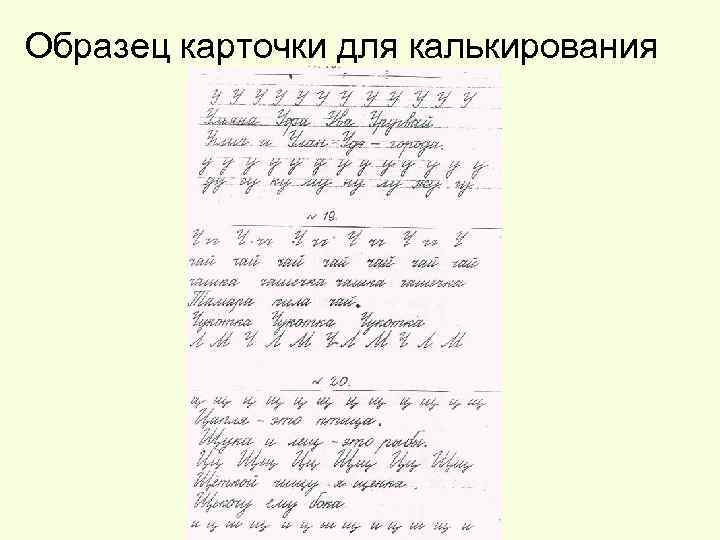 Образец карточки для калькирования
У У У У У У У У У У У У
Ульяна Уфа Ува Угрюмый
Углич и Улан-Удэ – города.
у у у у у у у у у у у у у
ду су ку ну лу жу гу
№ 19.
Ч чч Ч чч Ч чч Ч чч Ч чч Ч
чай чай чай чай чай чай чай
чашка чашечка чашка чашечка
Тамара пила чай.
Чукотка Чукотка Чукотка
Л М Ч Л М Ч Л М Ч Л М Ч
№ 20.
ц щ ц щ ц щ ц щ ц щ ц щ ц щ
Цапля – это птица.
Щука и лещ – это рыбы.
Цц Щщ Цц Щщ Цц Щщ
Щёткой чищу я щенка.
Щекочу ему бока
и ц ш щ и ц ш щ и ц ш щ и